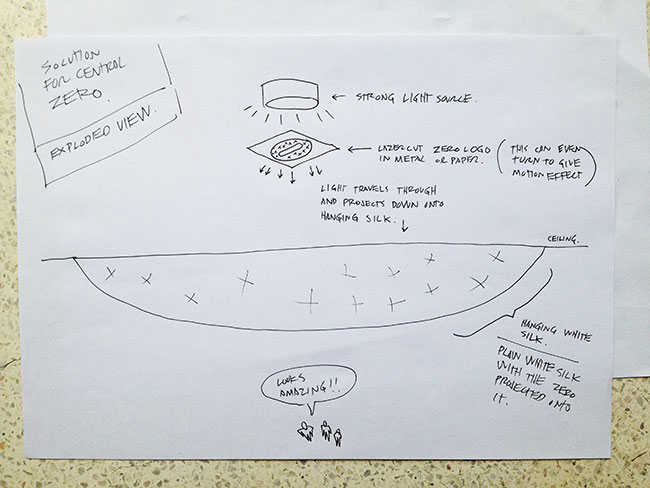 SOLUTION
FOR CENTRAL
ZERO.
EXPLODED VIEW.
← STRONG LIGHT SOURCE.
← LAZERCUT ZERO LOGO
IN METAL OR PAPER.
(THIS CAN EVEN
TURN TO GIVE
MOTION EFFECT)
LIGHT TRAVELS THROUGH
AND PROJECTS DOWN ONTO
HANGING SILK.
CEILING.
HANGING WHITE
SILK.
PLAIN WHITE SILK
WITH THE ZERO
PROJECTED ONTO
IT.
LOOKS
AMAZING!!